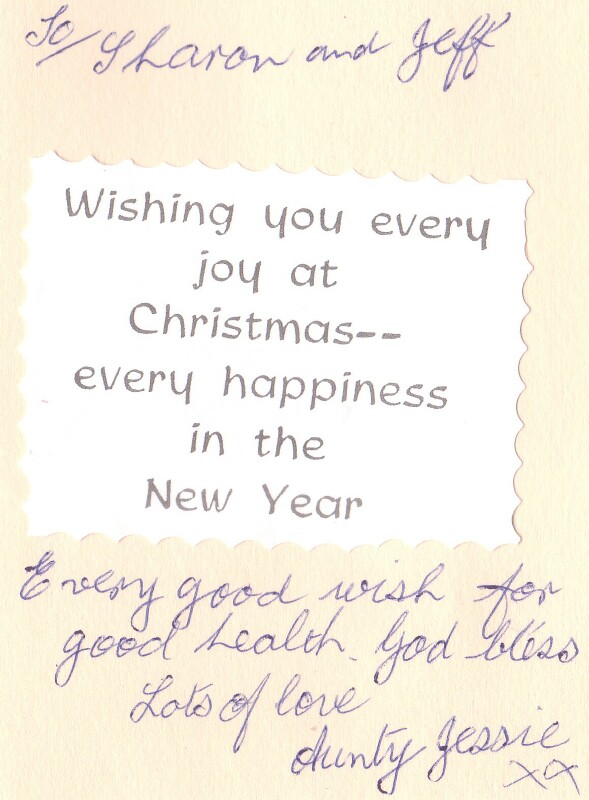 To/ Sharon and Jeff
Wishing you every
joy at
Christmas--
every happiness
in the
New Year
Every good wish for
good health. God bless
Lots of love
Aunty Jessie
xx